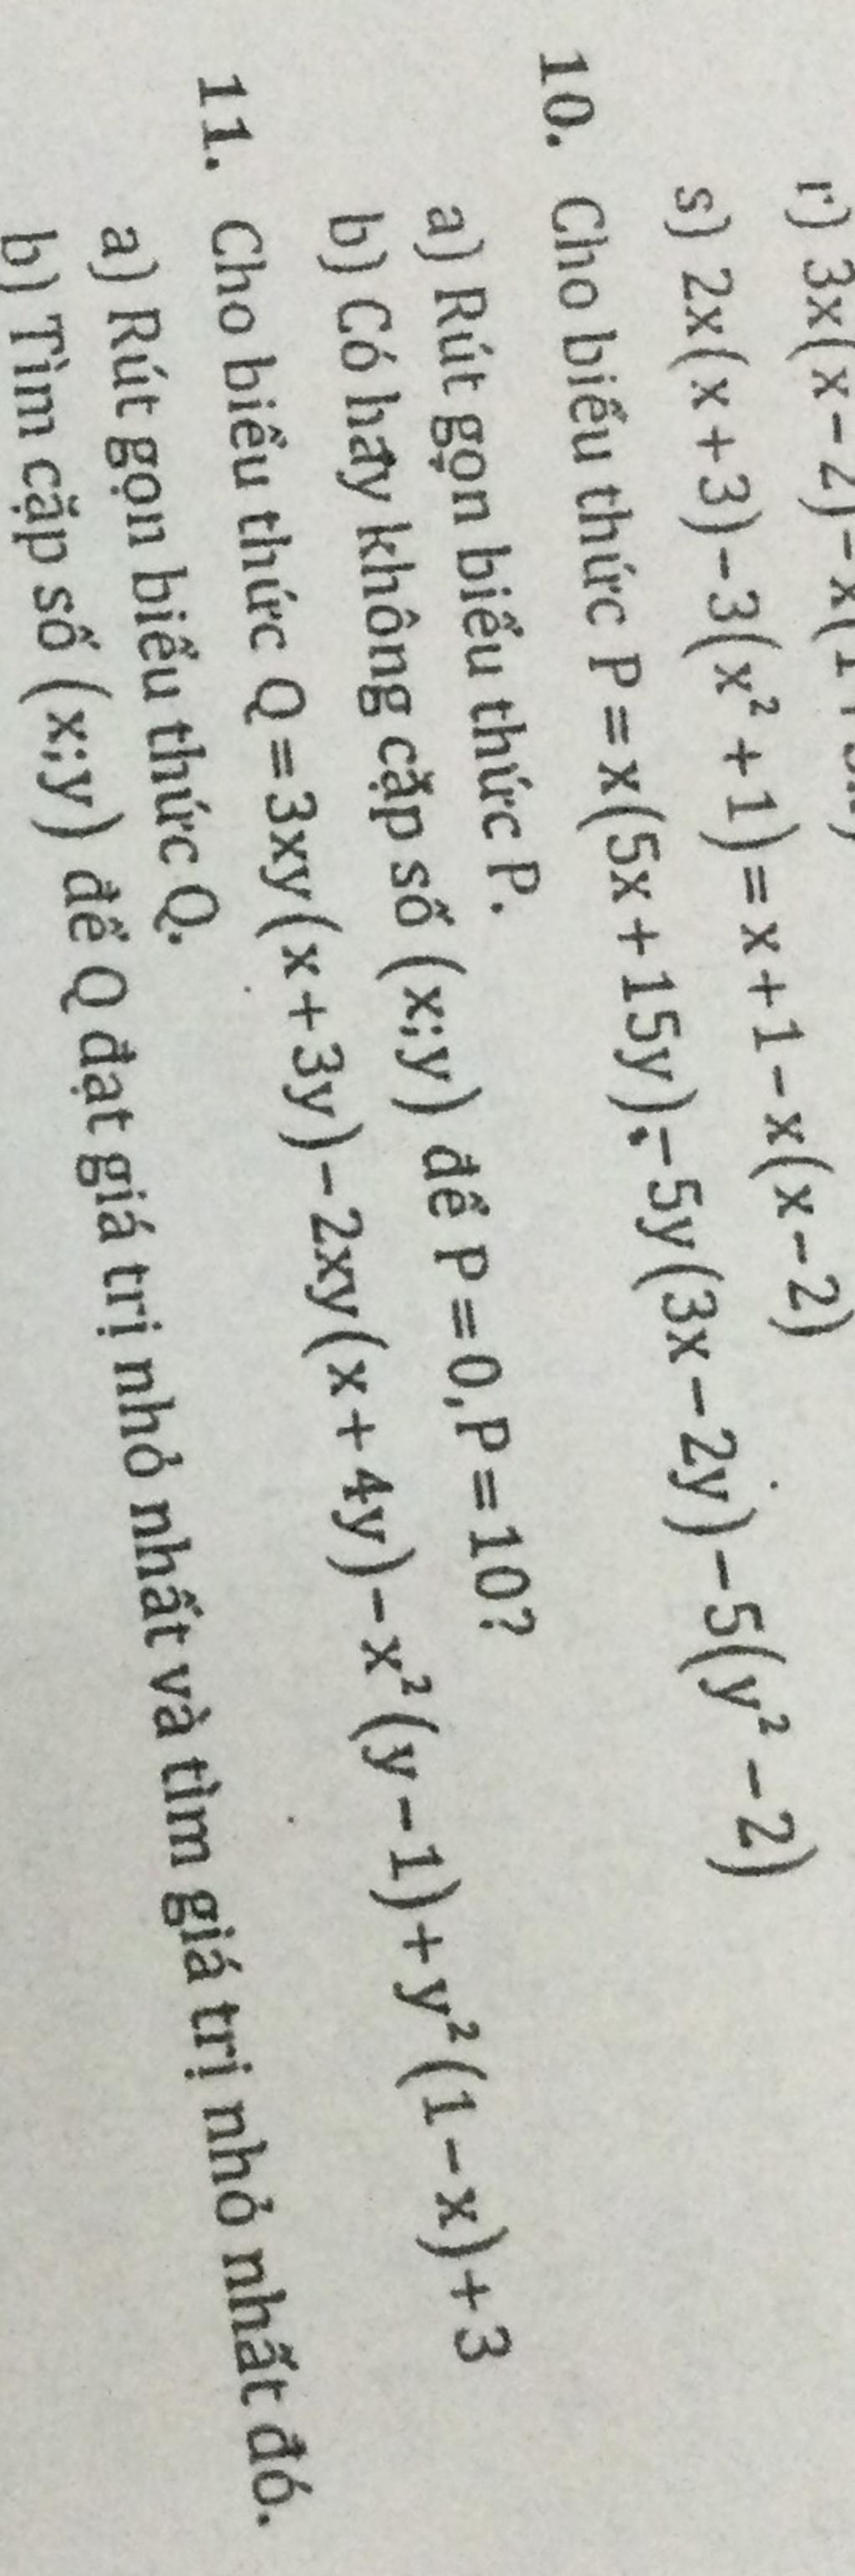 r) 3x(x-2)-x(1+3x)
s) 2x(x+3)-3(x²+1)=x+1-x(x-2)
10. Cho biểu thức P=x(5x+15y)-5y(3x-2y)-5(y²-2)
a) Rút gọn biểu thức P.
b) Có hay không cặp số (x;y) để P=0,P=10?
11. Cho biểu thức Q=3xy(x+3y)-2xy(x+4y)-x²(y-1)+y²(1-x)+3
a) Rút gọn biểu thức Q.
b) Tìm cặp số (x;y) để Q đạt giá trị nhỏ nhất và tìm giá trị nhỏ nhất đó.